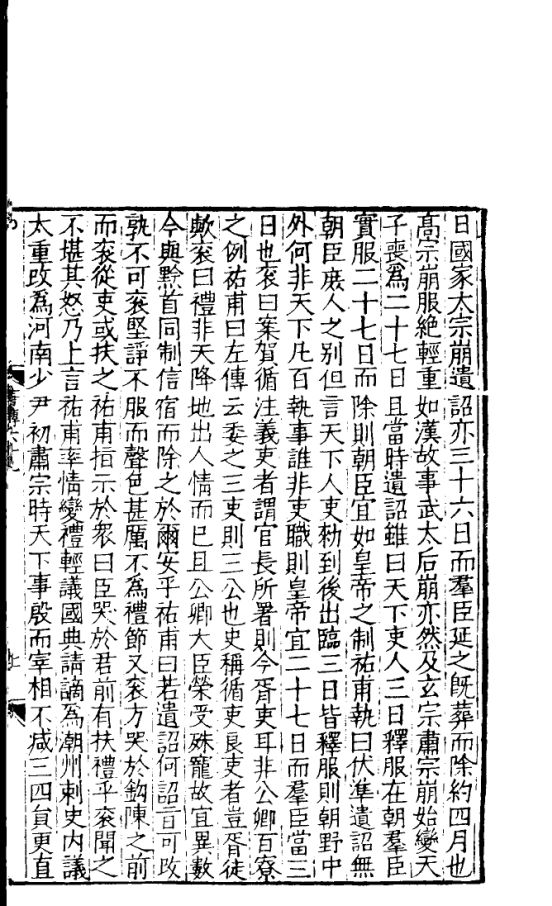 日國家太宗崩遺詔亦三十六日而羣臣延之既葬而除約四月也
高宗崩服絶輕重如漢故事武太后崩亦然及玄宗肅宗崩始變天
子喪爲二十七日且當時遺詔雖曰天下吏人三日釋服在朝羣臣
實服二十七日而除則朝臣宜如皇帝之制祐甫執曰伏準遺詔無
朝臣庶人之别但言天下人吏勑到後出臨三日皆釋服則朝野中
外何非天下凡百執事誰非吏職則皇帝宜二十七日而羣臣當三
日也衮曰案賀循注義吏者謂官長所署則今胥吏耳非公卿百寮
之例祐甫曰左傳云委之三吏則三公也史稱循吏良吏者豈胥徒
歟衮曰禮非天降地出人情而已且公卿大臣榮受殊寵故宜異數
今與黔首同制信宿而除之於爾安乎祐甫曰若遺詔何詔旨可改
孰不可衮堅諍不服而聲色甚厲不爲禮節又衮方哭於鉤陳之前
而衮從吏或扶之祐甫指示於衆曰臣哭於君前有扶禮乎衮聞之
不堪其怒乃上言祐甫率情變禮輕議國典請謫爲潮州刺史内議
太重改爲河南少尹初肅宗時天下事殷而宰相不减三四員更直